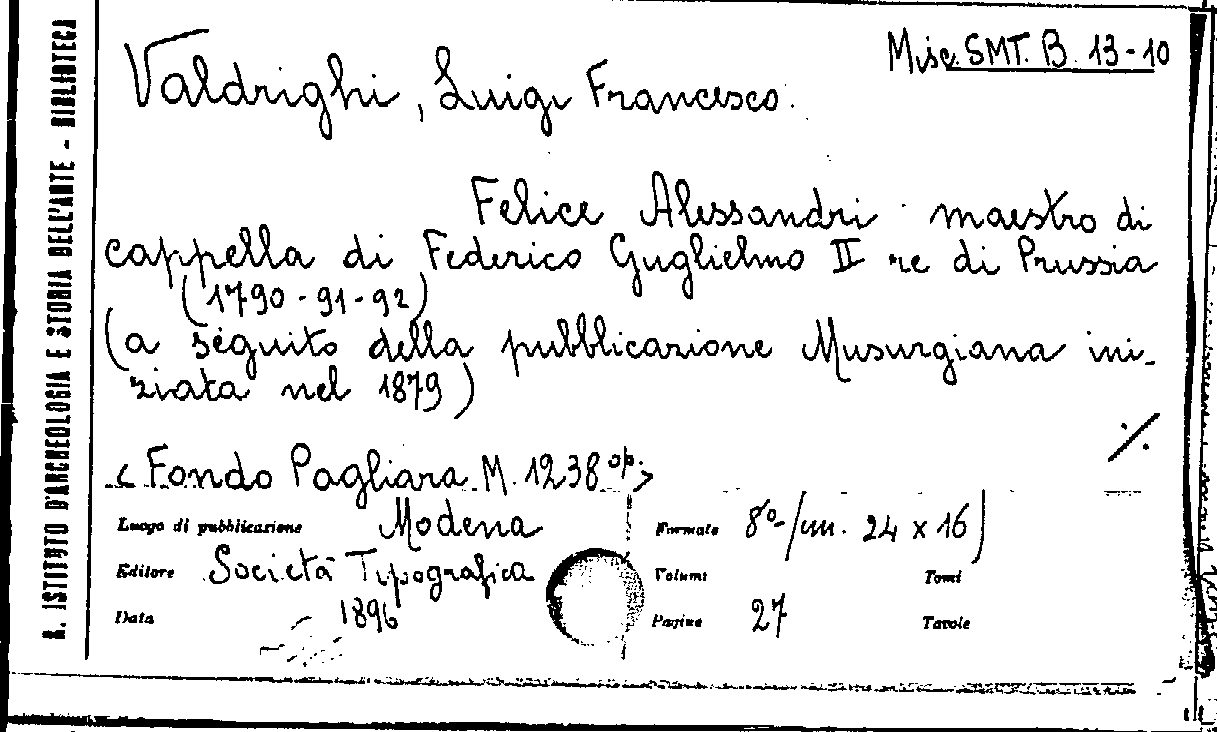 R. ISTITUTO D'ARCHEOLOGIA E STORIA DELL'ARTE - BIBLIOTECA
Misc. SMT. B. 13-10
Valdrighi, Luigi Francesco.
Felice Alessandri maestro di
cappella di Federico Guglielmo II re di Prussia
(1790-91-92)
(a seguito della pubblicazione Musurgiana ini-
ziata nel 1879)
./.
< Fondo Pagliara M. 1238 op. >
Luogo di pubblicazione Modena
Formato 8º-/cm. 24 x 16)
Editore Società Tipografica
Volumi Tomi
Data 1896
Pagine 27 Tavole